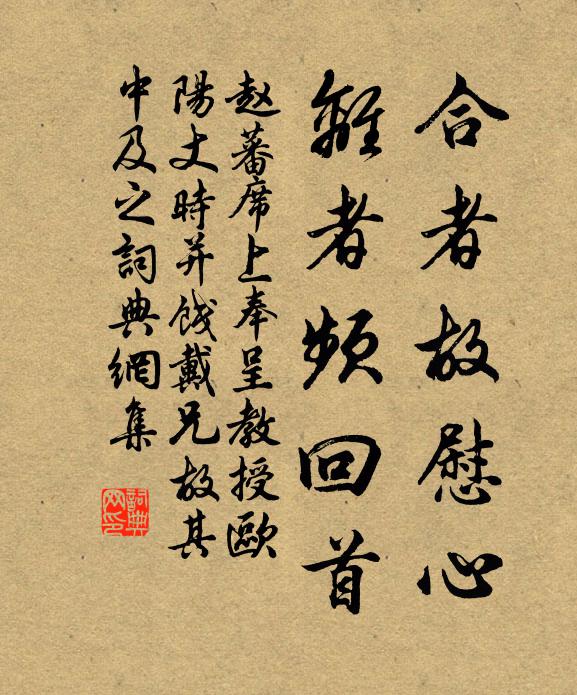 合者故慰心
離者頻回首
赵蕃席上奉呈教授歐
陽丈時并餞戴兄故其
中及之詞典網集
詞典網印